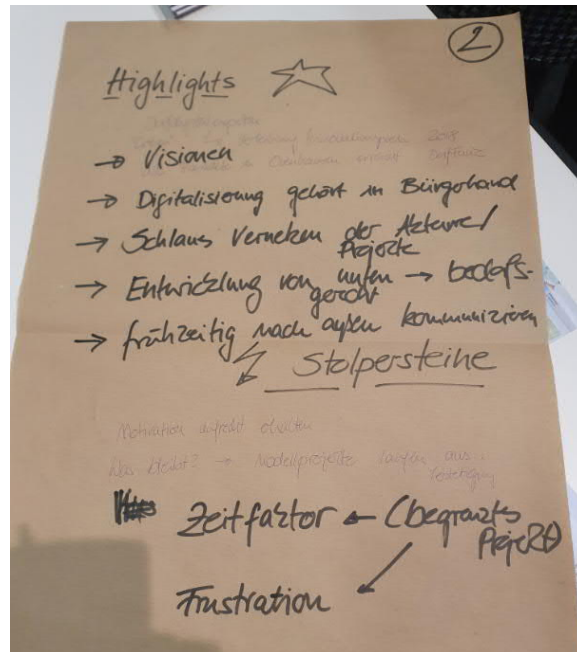 2
Highlights
→ Visionen
→ Digitalisierung gehört in Bürgerhand
→ Schlaues Vernetzen der Akteure/
Projekte
→ Entwicklung von unten → bedarfs-
gerecht
→ frühzeitig nach außen kommunizieren
Stolpersteine
Motivation aufrecht erhalten
Was bleibt? → Modellprojekte laufen aus
Zeitfaktor ← (begrenztes
Projekt)
Frustration